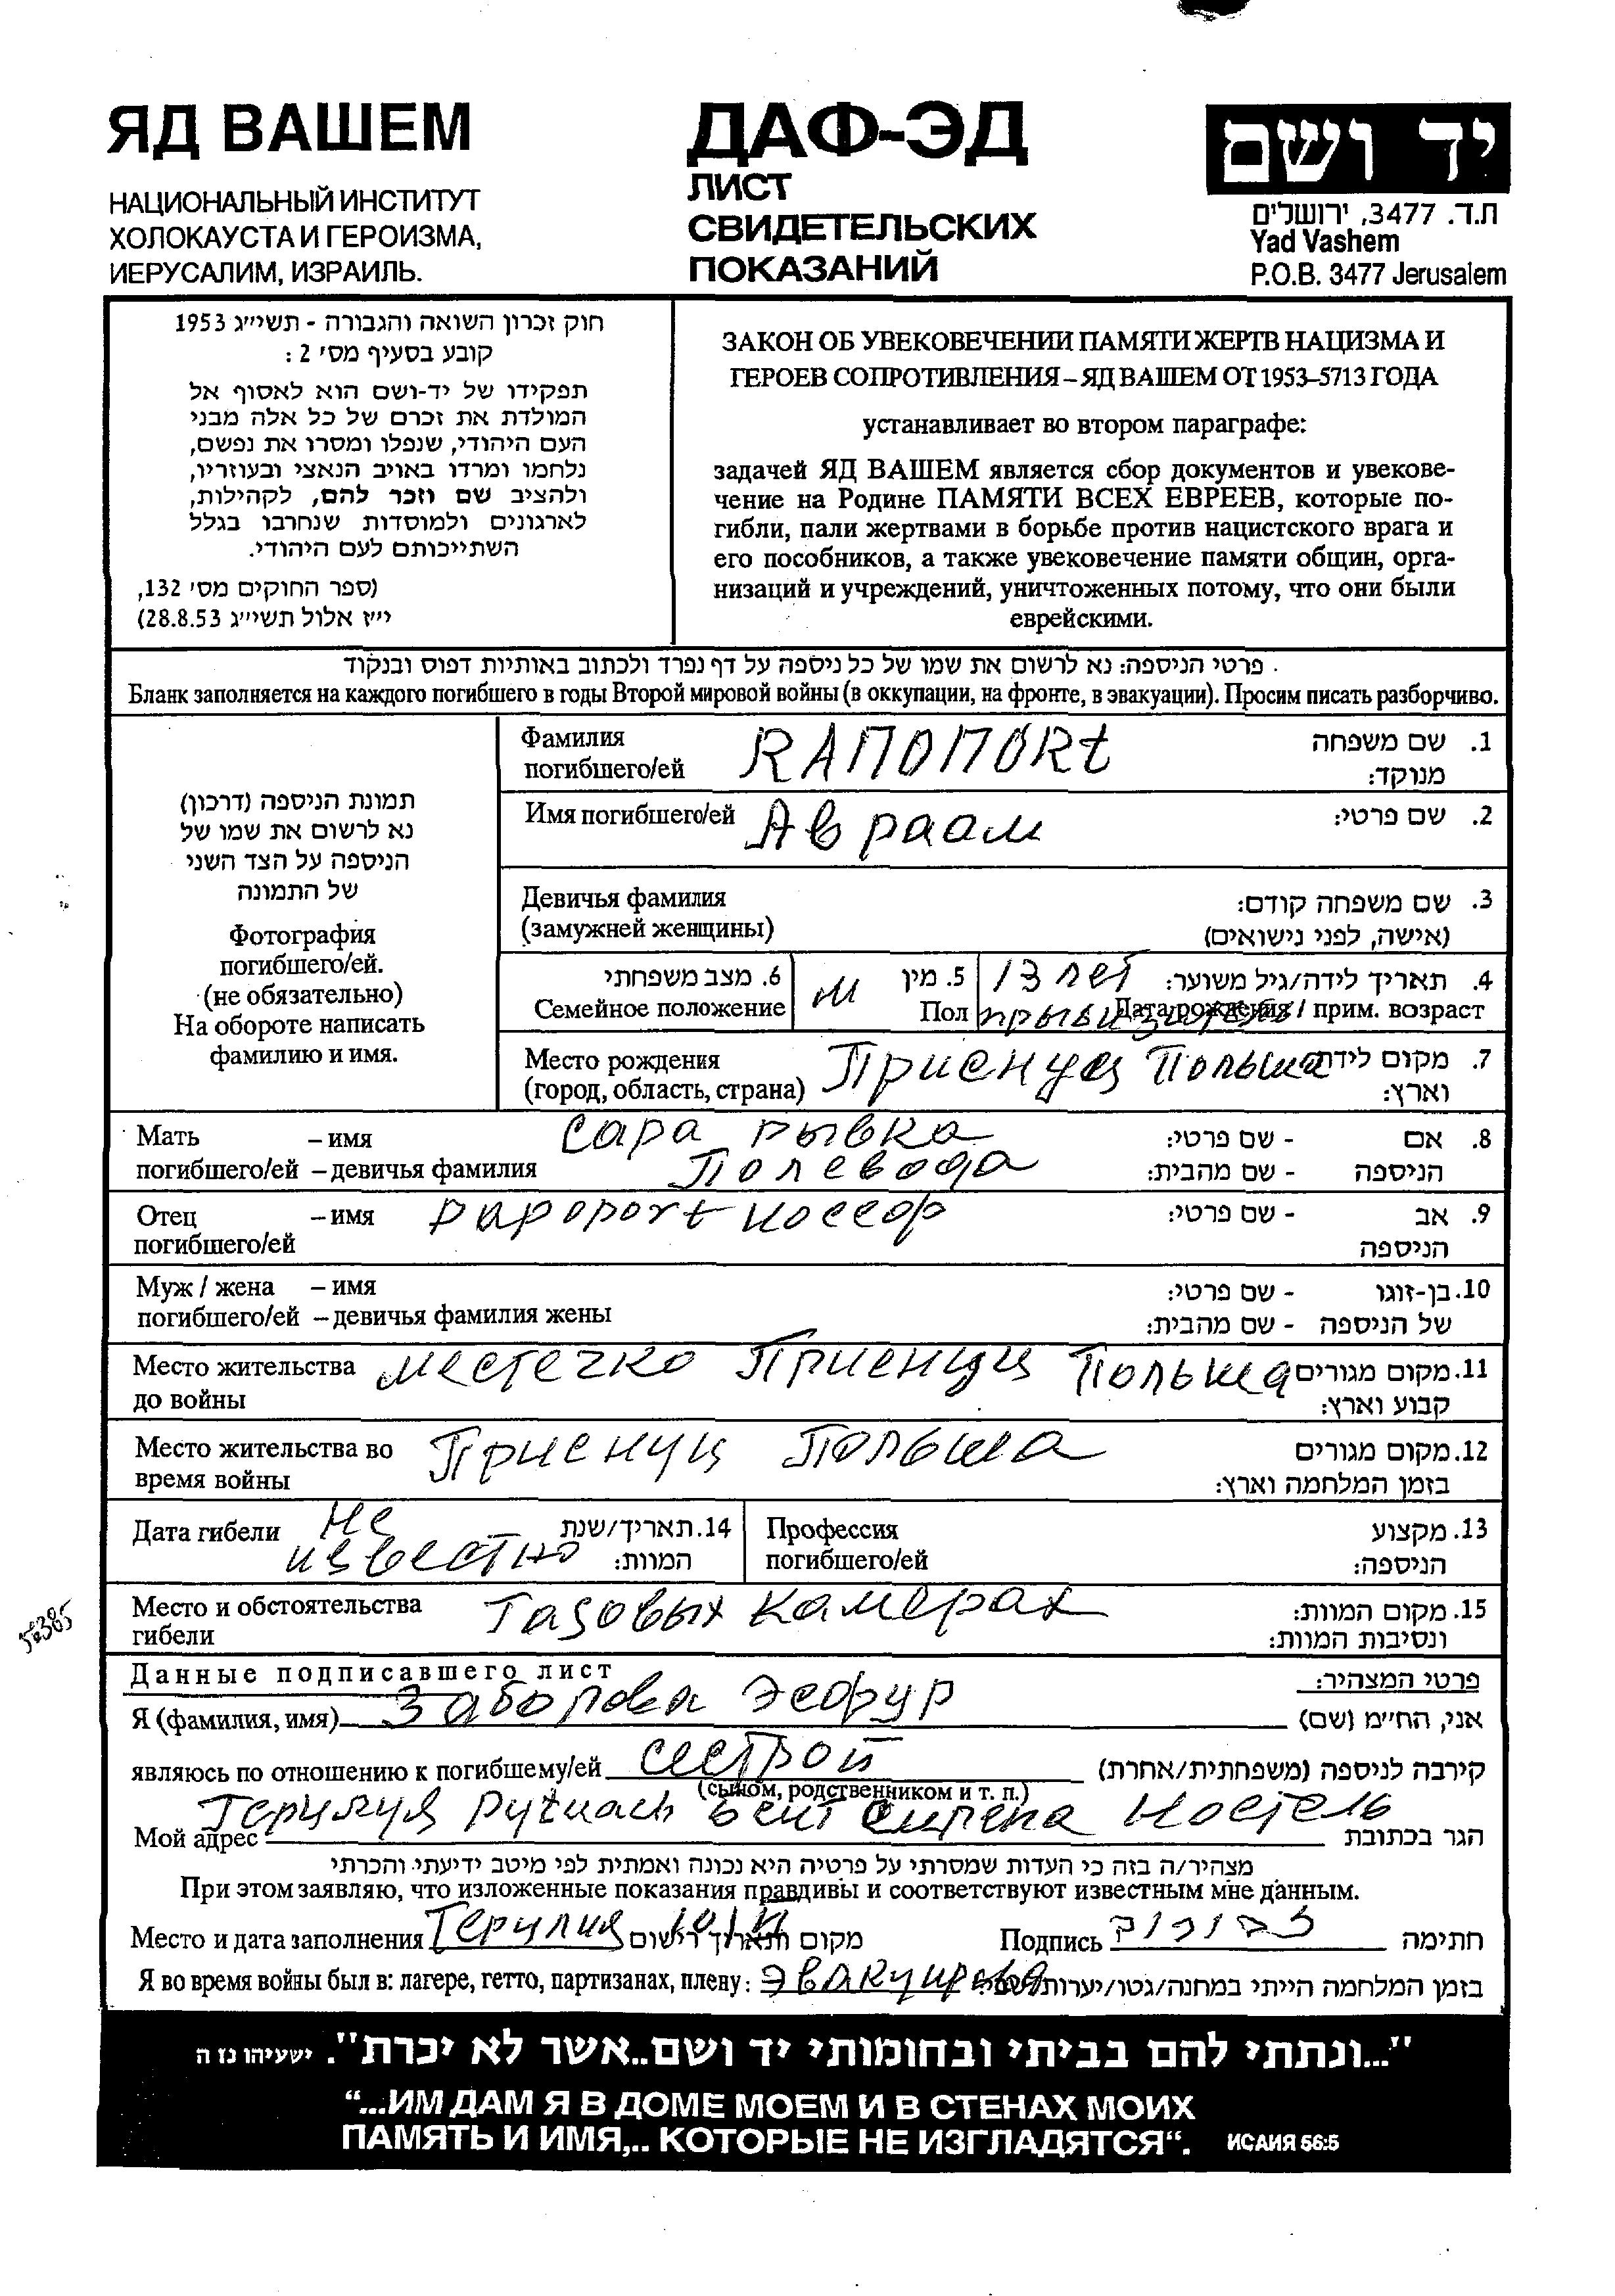 ЯД ВАШЕМ
НАЦИОНАЛЬНЫЙ ИНСТИТУТ
ХОЛОКАУСТА И ГЕРОИЗМА,
ИЕРУСАЛИМ, ИЗРАИЛЬ.
ДАФ-ЭД
ЛИСТ
СВИДЕТЕЛЬСКИХ
ПОКАЗАНИЙ
יד ושם
ת.ד. 3477, ירושלים
Yad Vashem
P.O.B. 3477 Jerusalem
חוק זכרון השואה והגבורה - תשי״ג 1953
קובע בסעיף מס׳ 2 :
תפקידו של יד-ושם הוא לאסוף אל
המולדת את זכרם של כל אלה מבני
העם היהודי, שנפלו ומסרו את נפשם,
נלחמו ומרדו באויב הנאצי ובעוזריו,
ולהציב שם וזכר להם, לקהילות,
לארגונים ולמוסדות שנחרבו בגלל
השתייכותם לעם היהודי.
(ספר החוקים מס׳ 132,
י״ז אלול תשי״ג 28.8.53)
ЗАКОН ОБ УВЕКОВЕЧЕНИИ ПАМЯТИ ЖЕРТВ НАЦИЗМА И
ГЕРОЕВ СОПРОТИВЛЕНИЯ – ЯД ВАШЕМ ОТ 1953–5713 ГОДА
устанавливает во втором параграфе:
задачей ЯД ВАШЕМ является сбор документов и увекове-
чение на Родине ПАМЯТИ ВСЕХ ЕВРЕЕВ, которые по-
гибли, пали жертвами в борьбе против нацистского врага и
его пособников, а также увековечение памяти общин, орга-
низаций и учреждений, уничтоженных потому, что они были
еврейскими.
פרטי הניספה: נא לרשום את שמו של כל ניספה על דף נפרד ולכתוב באותיות דפוס ובנקוד
Бланк заполняется на каждого погибшего в годы Второй мировой войны (в оккупации, на фронте, в эвакуации). Просим писать разборчиво.
תמונת הניספה (דרכון)
נא לרשום את שמו של
הניספה על הצד השני
של התמונה
Фотография
погибшего/ей.
(не обязательно)
На обороте написать
фамилию и имя.
Фамилия
погибшего/ей
RAПОПОRt
1. שם משפחה
מנוקד:
Имя погибшего/ей
Авраам
2. שם פרטי:
Девичья фамилия
(замужней женщины)
3. שם משפחה קודם:
(אישה, לפני נישואים)
6. מצב משפחתי
Семейное положение
М
5. מין
Пол
13 лет
4. תאריך לידה/גיל משוער:
Дата рождения / прим. возраст
Место рождения
(город, область, страна)
Приснуц Польша
7. מקום לידה
וארץ:
Мать – имя
Сара рывка
погибшего/ей – девичья фамилия
Полевода
8. אם - שם פרטי:
הניספה - שם מהבית:
Отец – имя
погибшего/ей
рароport
9. אב - שם פרטי:
הניספה
Муж / жена – имя
погибшего/ей – девичья фамилия жены
10. בן-זוגו - שם פרטי:
של הניספה - שם מהבית:
Место жительства
до войны
местечко Приснуц Польша
11. מקום מגורים
קבוע וארץ:
Место жительства во
время войны
Приснуц Польша
12. מקום מגורים
בזמן המלחמה וארץ:
Дата гибели
Не
известно
14. תאריך/שנת
המוות:
Профессия
погибшего/ей
13. מקצוע
הניספה:
Место и обстоятельства
гибели
Газовых камерах
15. מקום המוות:
ונסיבות המוות:
Данные подписавшего лист
פרטי המצהיר:
Я (фамилия, имя)
אני, הח״מ (שם)
являюсь по отношению к погибшему/ей
сестрой
קירבה לניספה (משפחתית/אחרת)
(сыном, родственником и т. п.)
Мой адрес
הגר בכתובת
מצהיר/ה בזה כי העדות שמסרתי על פרטיה היא נכונה ואמתית לפי מיטב ידיעתי והכרתי
При этом заявляю, что изложенные показания правдивы и соответствуют известным мне данным.
Место и дата заполнения
מקום ותאריך רישום
Подпись
חתימה
Я во время войны был в: лагере, гетто, партизанах, плену:
בזמן המלחמה הייתי במחנה/גטו/יערות
"...ונתתי להם בביתי ובחומותי יד ושם..אשר לא יכרת". ישעיהו נז ה
“...ИМ ДАМ Я В ДОМЕ МОЕМ И В СТЕНАХ МОИХ
ПАМЯТЬ И ИМЯ,.. КОТОРЫЕ НЕ ИЗГЛАДЯТСЯ“. ИСАИЯ 56:5